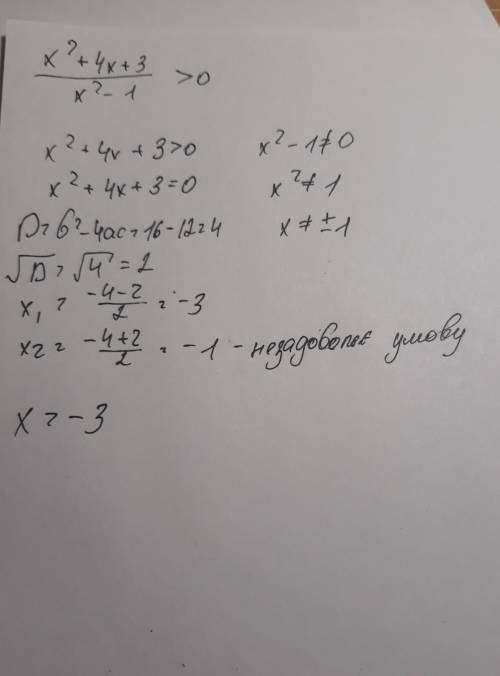 x² + 4x + 3
/ x² - 1 > 0
x² + 4x + 3 > 0 x² - 1 ≠ 0
x² + 4x + 3 = 0 x² ≠ 1
D = b² - 4ac = 16 - 12 = 4 x ≠ ± 1
√D = √4 = 2
x₁ = -4-2/2 = -3
x₂ = -4+2/2 = -1 - незадовольняє умову
x = -3